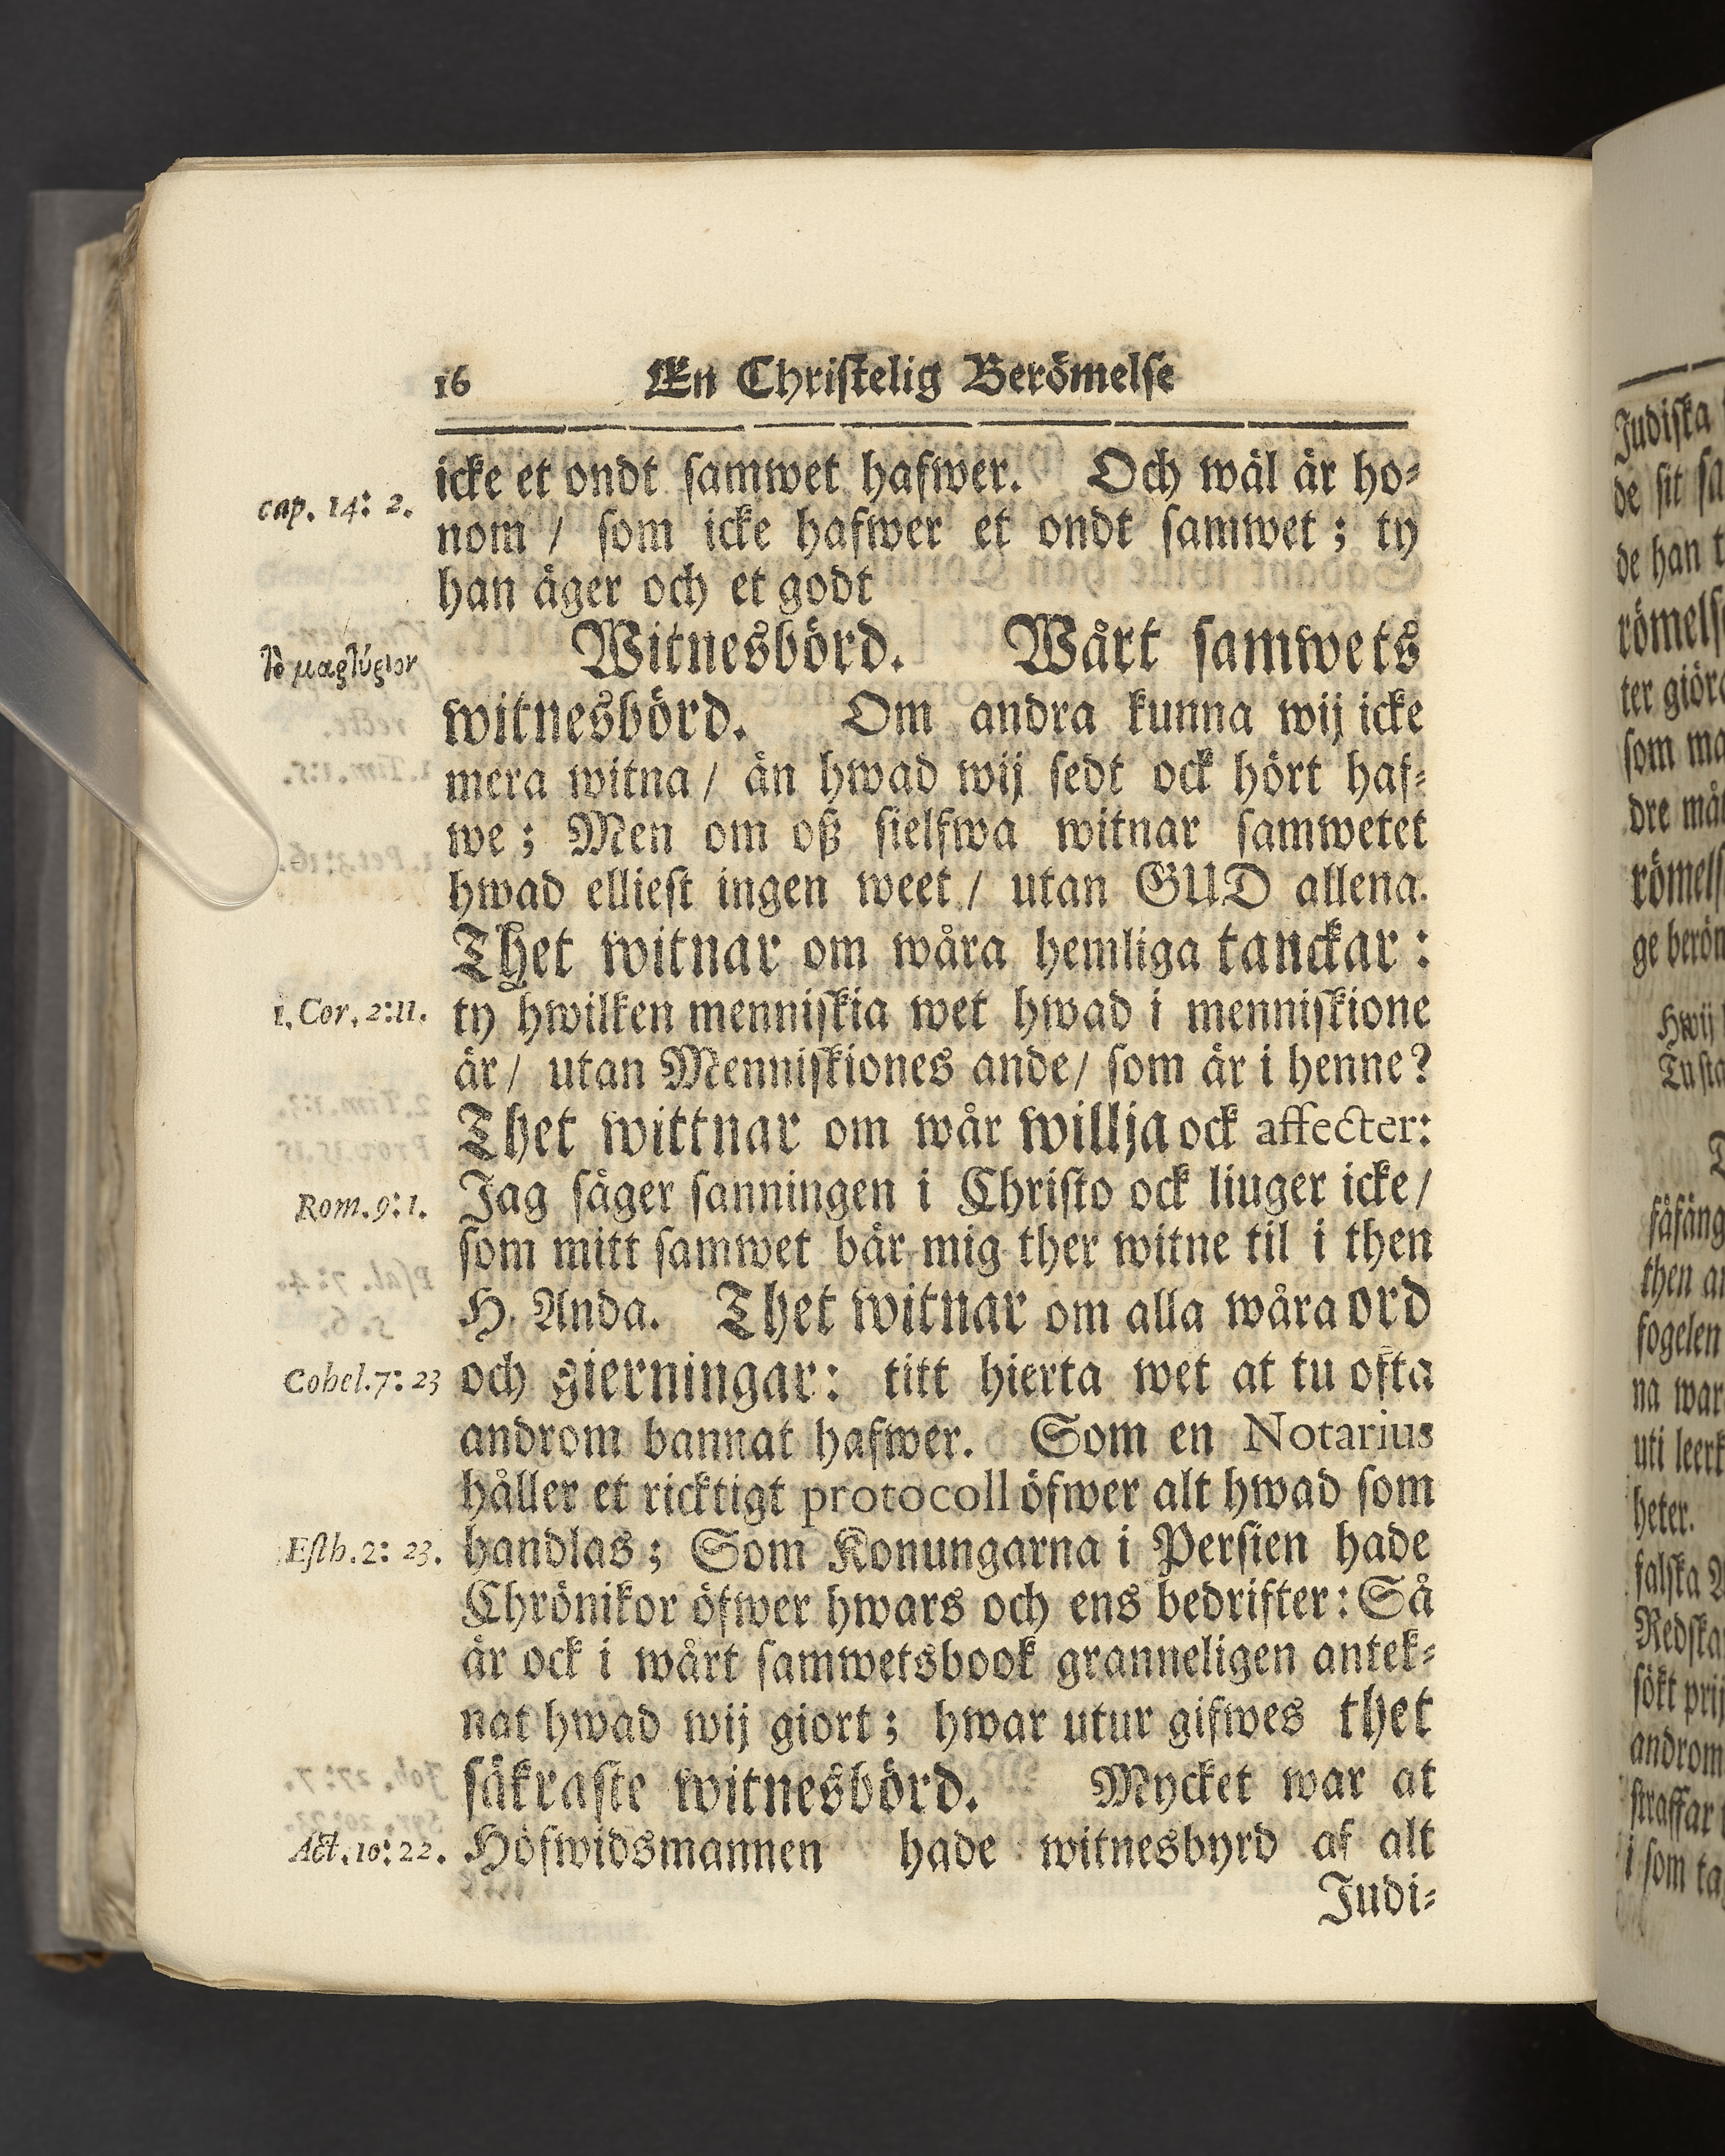 16 En Christelig Berömelse
icke et ondt samwet hafwer. Och wäl är ho-
cap. 14: 2.
nom / som icke hafwer et ondt samwet; ty
han äger och et godt
Witnesbörd. Wårt samwets
Τὸ μαρτύριον
witnesbörd. Om andra kunna wij icke
mera witna / än hwad wij sedt ock hört haf-
we; Men om oß sielfwa witnar samwetet
hwad elliest ingen weet / utan GUD allena.
Thet witnar om wåra hemliga tanckar:
1. Cor. 2:11.
ty hwilken menniskia wet hwad i menniskione
är / utan Menniskiones ande / som är i henne?
Thet wittnar om wår willja ock affecter:
Rom. 9: 1.
Jag säger sanningen i Christo ock liuger icke /
som mitt samwet bär mig ther witne til i then
H. Anda. Thet witnar om alla wåra ord
Cohel. 7: 23
och gierningar: titt hierta wet at tu ofta
androm bannat hafwer. Som en Notarius
håller et ricktigt protocoll öfwer alt hwad som
Esth. 2: 23.
handlas; Som Konungarna i Persien hade
Chrönikor öfwer hwars och ens bedrifter: Så
är ock i wårt samwetsbook granneligen antek-
nat hwad wij giort; hwar utur gifwes thet
säkraste witnesbörd. Mycket war at
Act. 10: 22.
Höfwidsmannen hade witnesbyrd af alt
Judi-
Judiska
de sit sa
de han t
römels
ter giör
som ma
dre må
römels
ge beröm
Hwij
Tusta
then a
fogelen
na war
uti leerk
heter.
falska
Redska
sökt prij
androm
straffar
i som ta